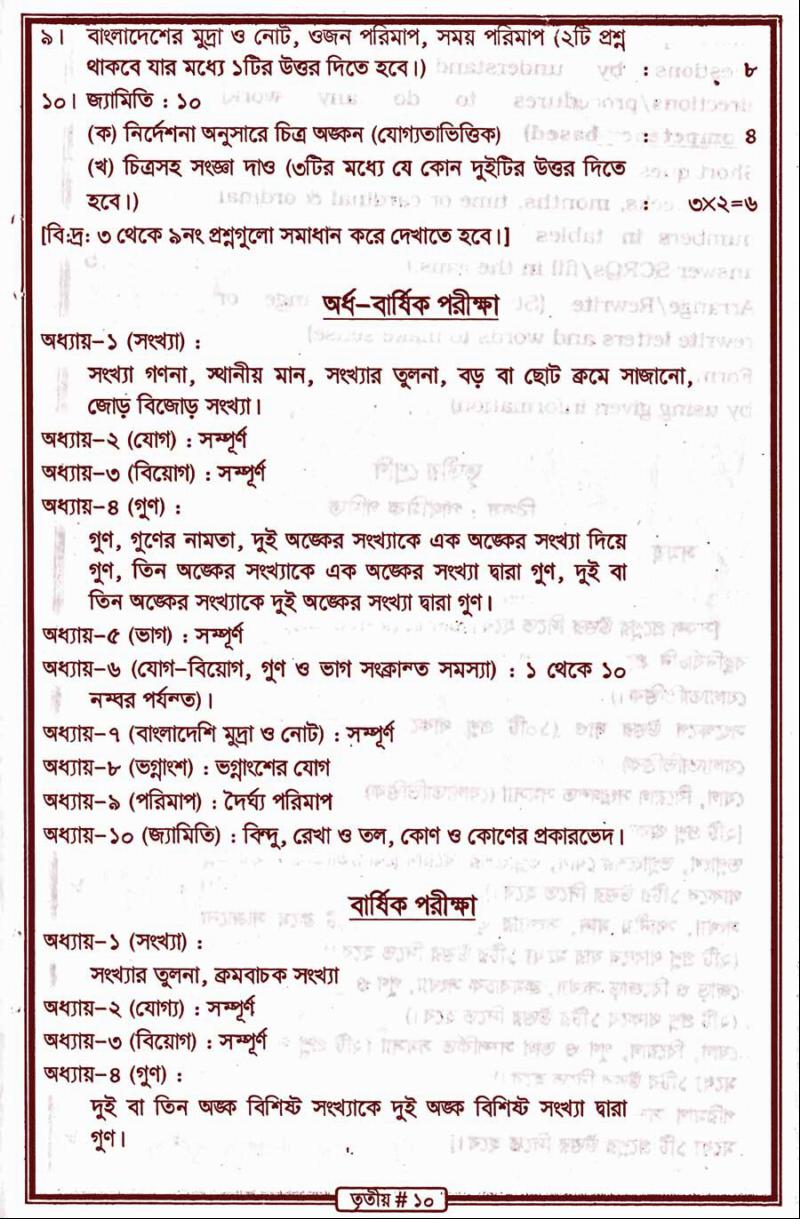 ৯। বাংলাদেশের মুদ্রা ও নোট, ওজন পরিমাপ, সময় পরিমাপ (২টি প্রশ্ন
থাকবে যার মধ্যে ১টির উত্তর দিতে হবে।) : ৮
১০। জ্যামিতি : ১০
(ক) নির্দেশনা অনুসারে চিত্র অঙ্কন (যোগ্যতাভিত্তিক) : ৪
(খ) চিত্রসহ সংজ্ঞা দাও (৩টির মধ্যে যে কোন দুইটির উত্তর দিতে
হবে।) : ৩×২=৬
[বি:দ্র: ৩ থেকে ৯নং প্রশ্নগুলো সমাধান করে দেখাতে হবে।]
অর্ধ–বার্ষিক পরীক্ষা
অধ্যায়–১ (সংখ্যা) :
সংখ্যা গণনা, স্থানীয় মান, সংখ্যার তুলনা, বড় বা ছোট ক্রমে সাজানো,
জোড় বিজোড় সংখ্যা।
অধ্যায়–২ (যোগ) : সম্পূর্ণ
অধ্যায়–৩ (বিয়োগ) : সম্পূর্ণ
অধ্যায়–৪ (গুণ) :
গুণ, গুণের নামতা, দুই অঙ্কের সংখ্যাকে এক অঙ্কের সংখ্যা দিয়ে
গুণ, তিন অঙ্কের সংখ্যাকে এক অঙ্কের সংখ্যা দ্বারা গুণ, দুই বা
তিন অঙ্কের সংখ্যাকে দুই অঙ্কের সংখ্যা দ্বারা গুণ।
অধ্যায়–৫ (ভাগ) : সম্পূর্ণ
অধ্যায়–৬ (যোগ–বিয়োগ, গুণ ও ভাগ সংক্রান্ত সমস্যা) : ১ থেকে ১০
নম্বর পর্যন্ত)।
অধ্যায়–৭ (বাংলাদেশি মুদ্রা ও নোট) : সম্পূর্ণ
অধ্যায়–৮ (ভগ্নাংশ) : ভগ্নাংশের যোগ
অধ্যায়–৯ (পরিমাপ) : দৈর্ঘ্য পরিমাপ
অধ্যায়–১০ (জ্যামিতি) : বিন্দু, রেখা ও তল, কোণ ও কোণের প্রকারভেদ।
বার্ষিক পরীক্ষা
অধ্যায়–১ (সংখ্যা) :
সংখ্যার তুলনা, ক্রমবাচক সংখ্যা
অধ্যায়–২ (যোগ্য) : সম্পূর্ণ
অধ্যায়–৩ (বিয়োগ) : সম্পূর্ণ
অধ্যায়–৪ (গুণ) :
দুই বা তিন অঙ্ক বিশিষ্ট সংখ্যাকে দুই অঙ্ক বিশিষ্ট সংখ্যা দ্বারা
গুণ।
তৃতীয় # ১০